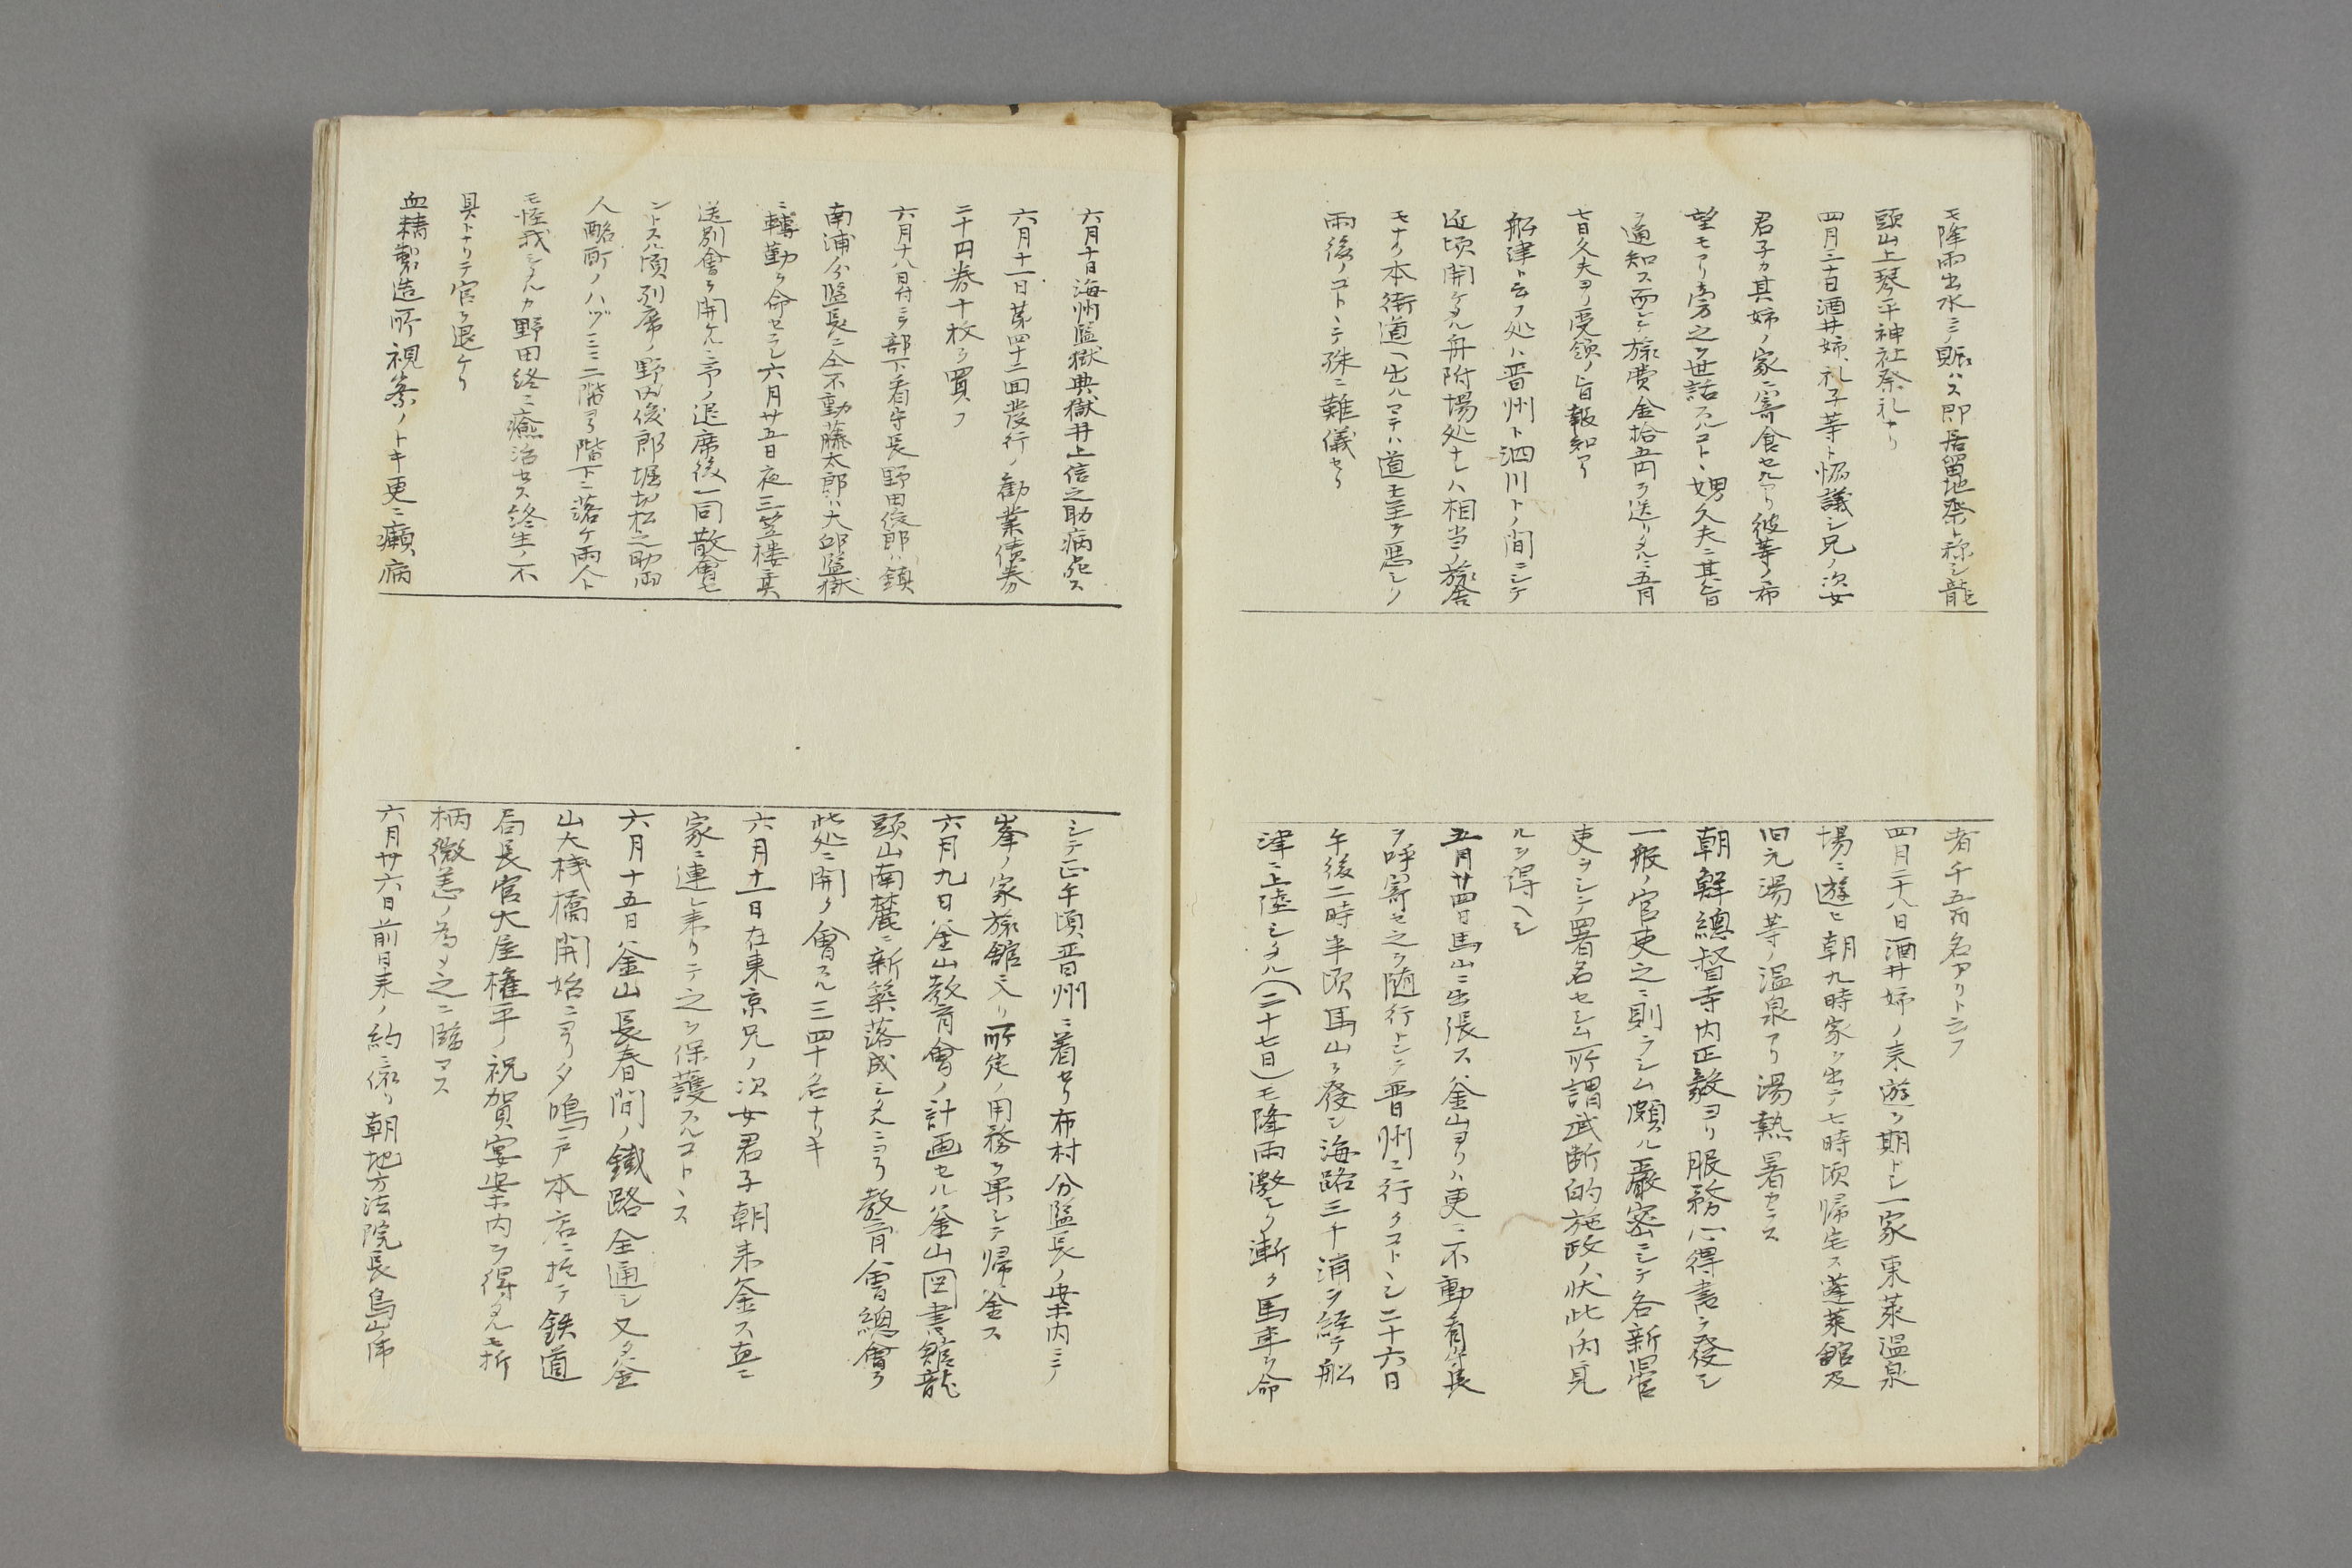 モ降雨出水ニテ賑ハス即居留地祭ト称シ龍
頭山上琴平神社祭礼ナリ
四月三十日酒井姉、礼子等ト協議シ兄ノ次女
君子カ其姉ノ家ニ寄食セルアリ彼等ノ希
望モアリ旁之ヲ世話スルコトヽシ甥久夫ニ其旨
ヲ通知ス而シテ旅費金拾五円ヲ送リタルニ五月
七日久夫ヨリ受領ノ旨報知アリ
船津ト云フ処ハ晋州ト泗川トノ間ニシテ
近頃開ケタル舟附場処ナレハ相当ノ旅舎
モナク本街道ヘ出ルマテハ道モ至テ悪シク
雨後ノコトヽテ殊ニ難儀セリ
者千五百名アリト云フ
四月二十八日酒井姉ノ来遊ヲ期トシ一家東萊温泉
場ニ遊ヒ朝九時家ヲ出テ七時頃帰宅ス蓬萊館及
旧元湯等ノ温泉アリ湯熱暑カラス
朝鮮總督寺内正毅ヨリ服務心得書ヲ發シ
一般ノ官吏之ニ則ラシム頗ル嚴密ニシテ各新旧官
吏ヲシテ署名セシム所謂武断的施政ノ状此ノ内見
ルヲ得ヘシ
五月廿四日馬山ニ出張ス釜山ヨリハ更ニ不動看守長
ヲ呼寄セ之ヲ随行トシテ晋州ニ行クコトヽシ二十六日
午後二時半頃馬山ヲ發シ海路三千浦ヲ経テ船
津ニ上陸シタル(二十七日)モ降雨激シク漸ク馬車ヲ命
六月十日海州監獄典獄井上信之助病死ス
六月十一日第四十二回發行ノ勧業債券
二十円券十枚ヲ買フ
六月十八日付ニテ部下看守長野田俊郎ハ鎮
南浦分監長ニ仝不動藤太郎ハ大邱監獄
ニ轉勤ヲ命セラレ六月廿五日夜三笠楼ニ其
送別會ヲ開ケルニ予ノ退席後一同散會セ
ントスル頃列席ノ野田俊郎堀切松之助両
人酩酊ノハヅミニ二階ヨリ階下ニ落ケ両人ト
モ怪我シタルカ野田終ニ癒治セス終生ノ不
具トナリテ官ヲ退ケリ
血精製造所視察ノトキ更ニ癩病
シテ正午頃晋州ニ着セリ布村分監長ノ案内ニテ
峯ノ家旅館ニ入リ所定ノ用務ヲ果シテ帰釜ス
六月九日釜山教育會ノ計画セル釜山図書館龍
頭山南麓ニ新築落成シタルニヨリ教育會總會ヲ
此処ニ開ク會スル三四十名ナリキ
六月十一日在東京兄ノ次女君子朝来釜ス直ニ
家ニ連レ来リテ之ヲ保護スルコトヽス
六月十五日釜山長春間ノ鐵路全通シ又タ釜
山大棧橋開始ニヨリ夕鳴戸本店ニ於テ鉄道
局長官大屋権平ノ祝賀宴案内ヲ得タルモ折
柄微恙ノ為メ之ニ臨マス
六月廿六日前日来ノ約ニ依リ朝地方法院長烏山席